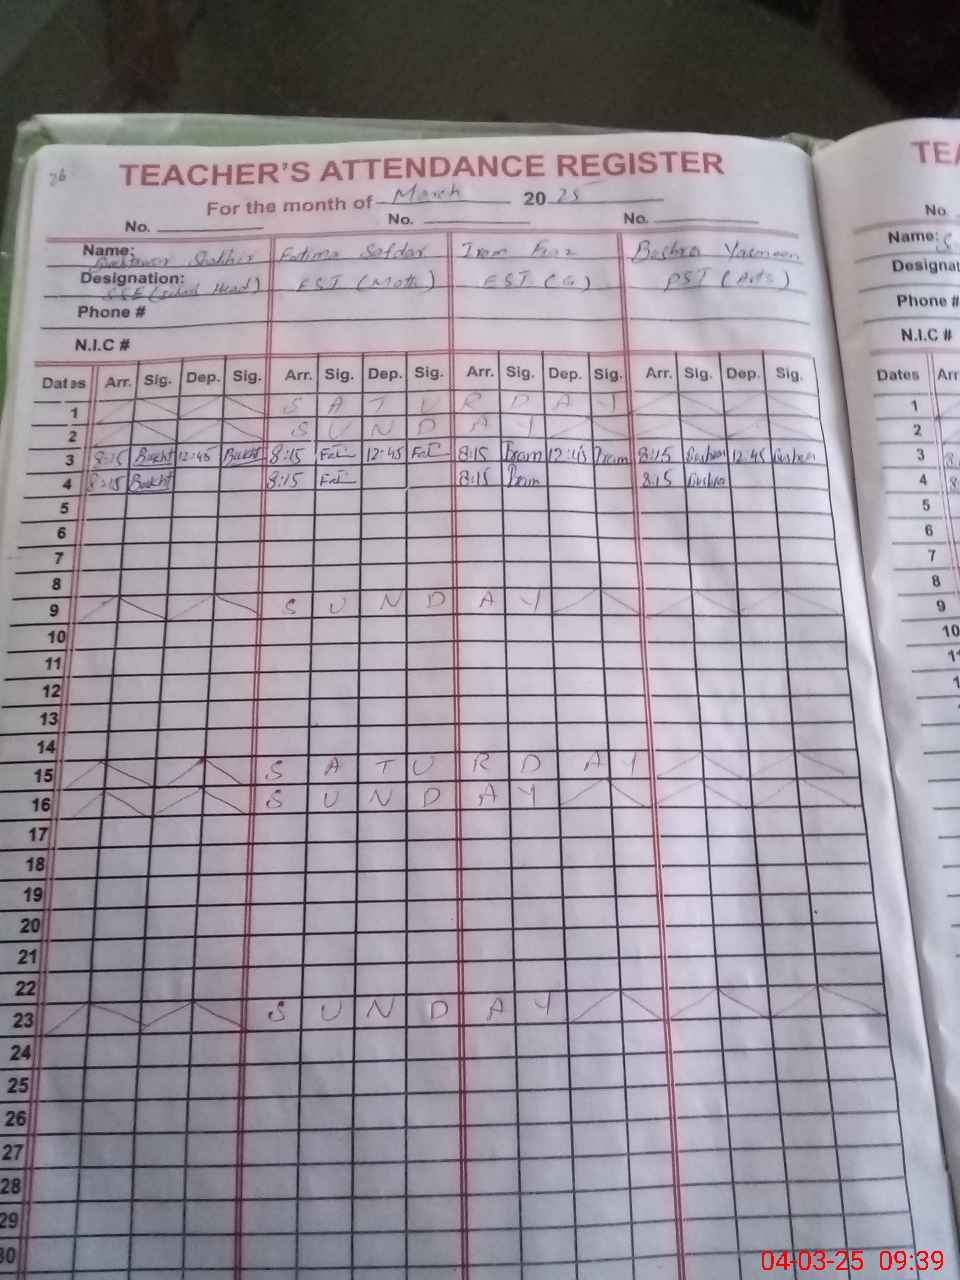 26
TEACHER'S ATTENDANCE REGISTER
For the month of March 2025
No. No. No.
Name: Shakhir Fatima Safdar Iram Bushra Yasmeen
Designation: SSE (School Head) EST (Math) EST (G) PST (Arts)
Phone #
N.I.C #
Dates Arr. Sig. Dep. Sig. Arr. Sig. Dep. Sig. Arr. Sig. Dep. Sig. Arr. Sig. Dep. Sig.
1 SATURDAY
2 SUNDAY
3 8:15 Bakht 12:45 Bakht 8:15 Fati 12:45 Fati 8:15 Iram 12:45 Iram 8:15 Bushra 12:45 Bushra
4 8:15 Bakht 8:15 Fati 8:15 Iram 8:15 Bushra
5
6
7
8
9 SUNDAY
10
11
12
13
14
15 SATURDAY
16 SUNDAY
17
18
19
20
21
22
23 SUNDAY
24
25
26
27
28
29
30
TEA
No.
Name:
Designat
Phone #
N.I.C #
Dates Arr
1
2
3
4
5
6
7
8
9
10
04-03-25 09:39